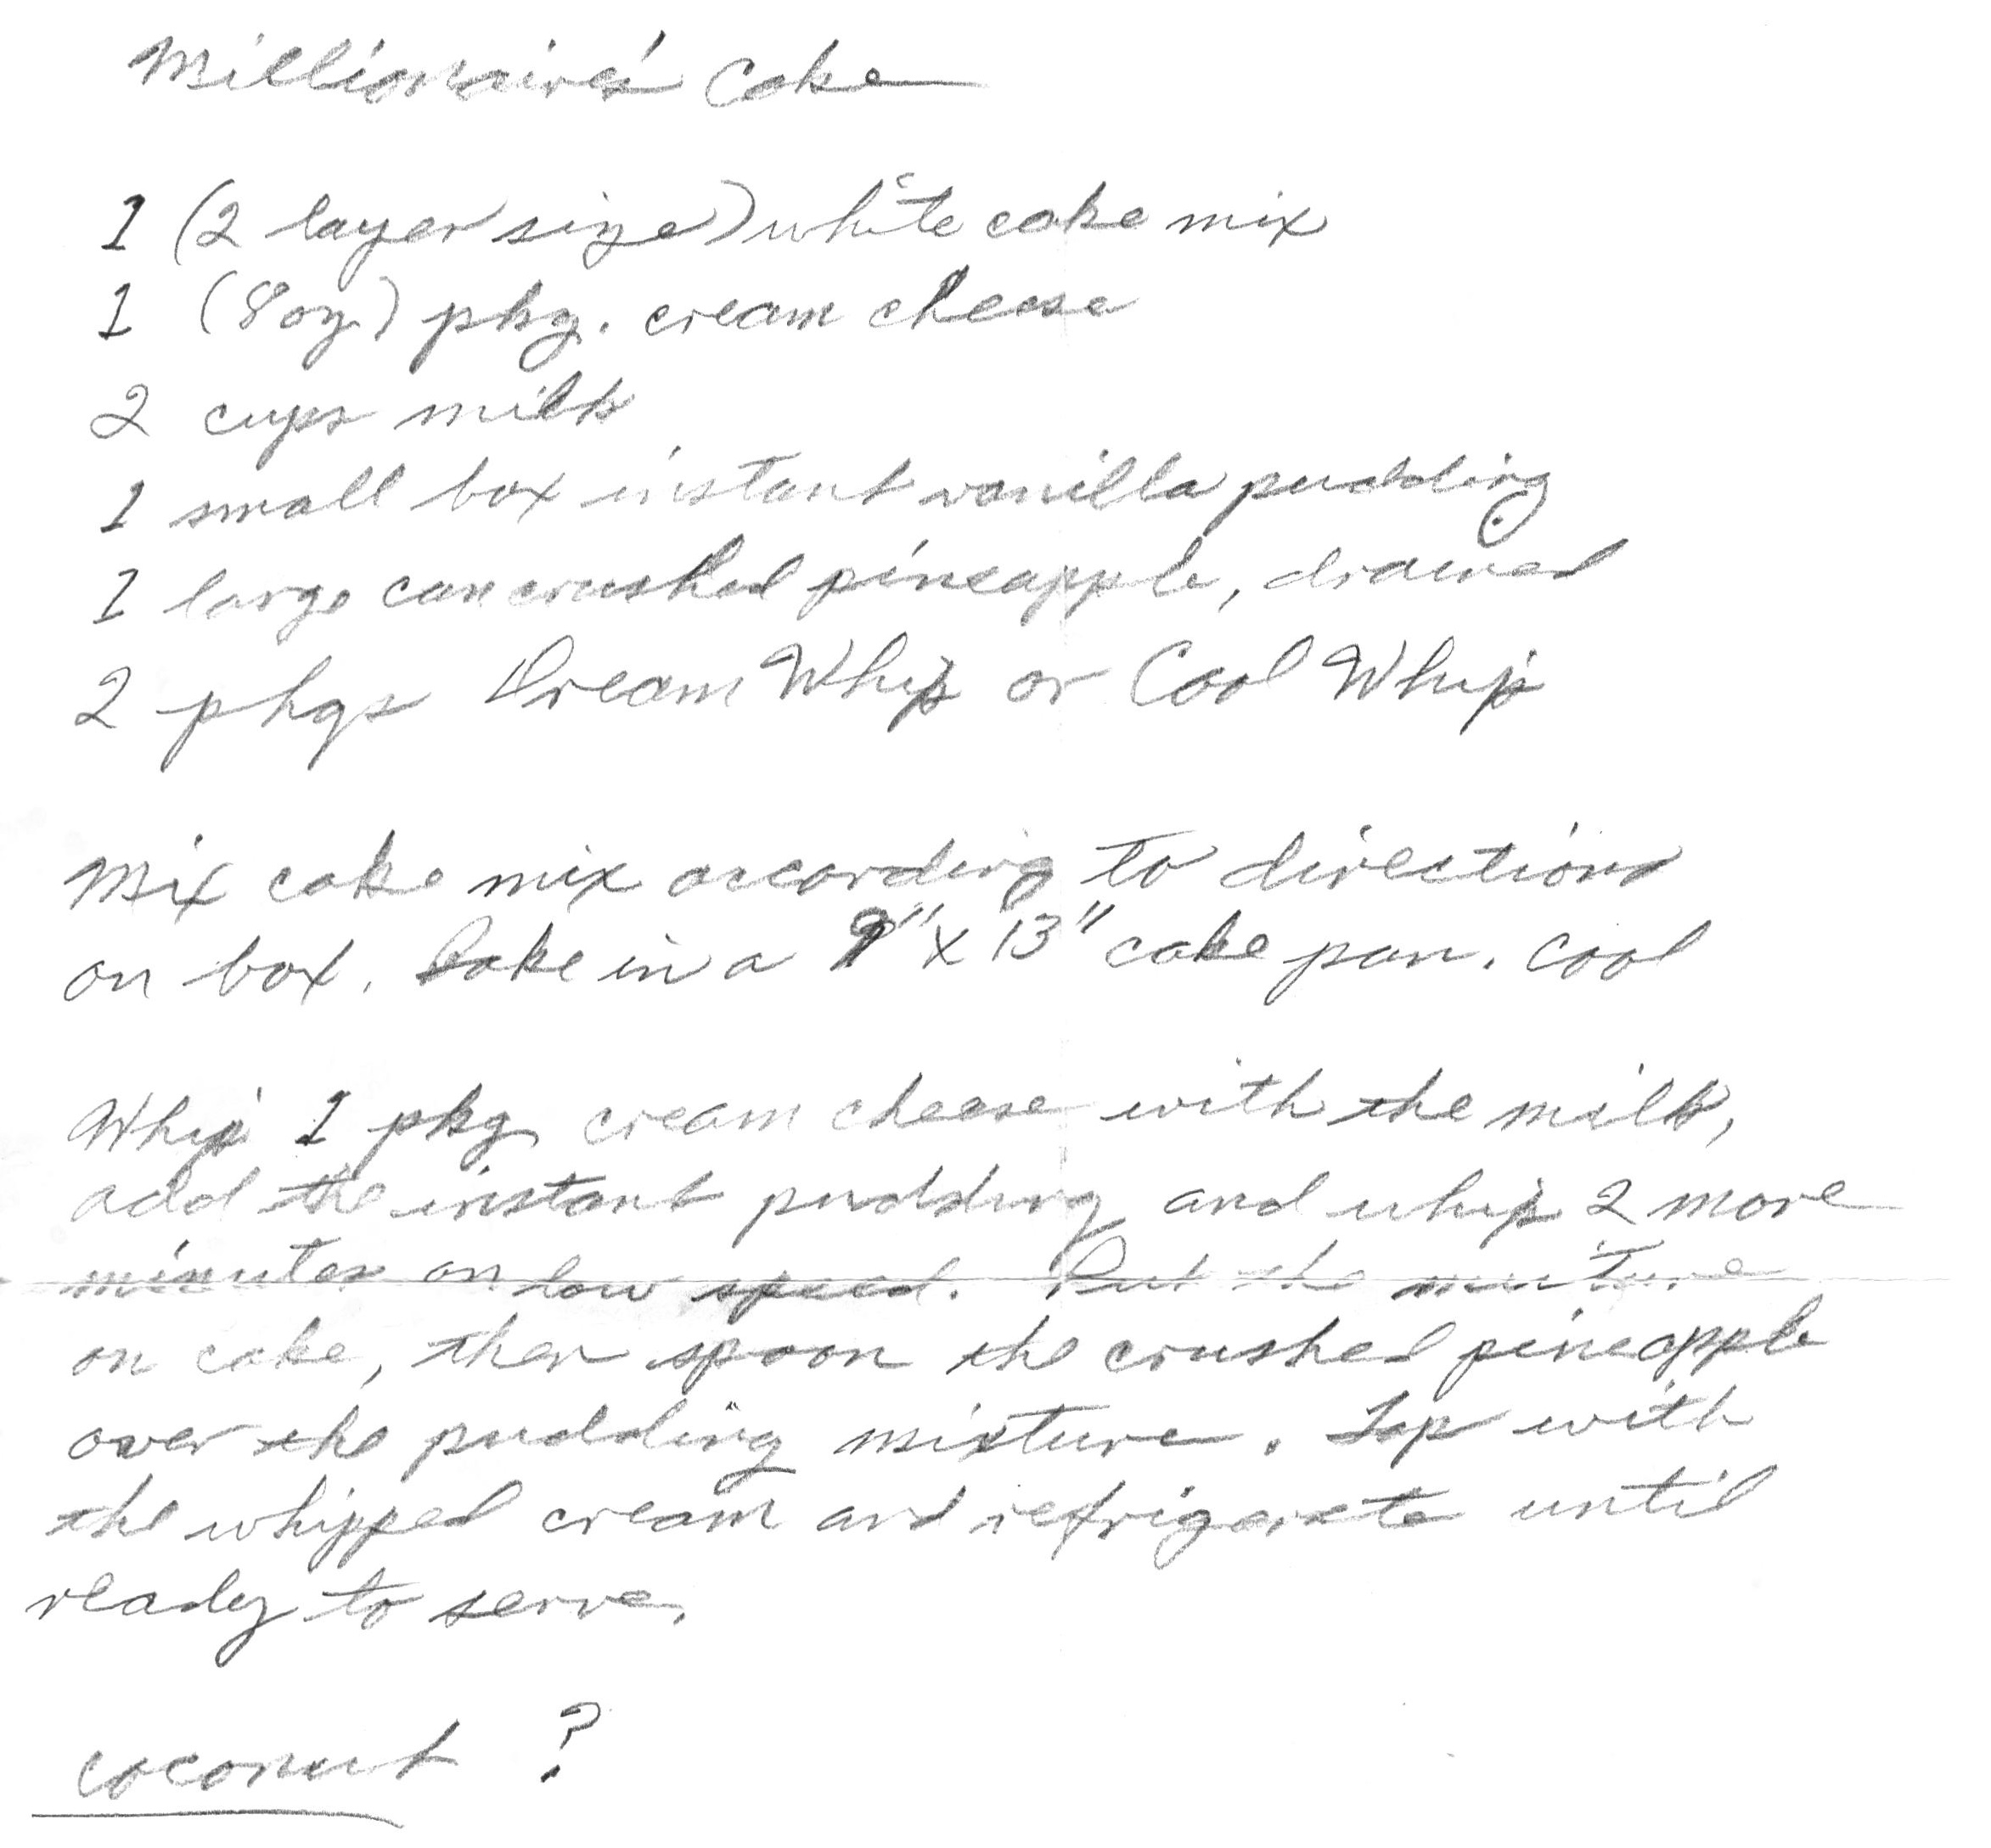 Millionaires' Cake
1 (2 layer size) white cake mix
1 (8 oz.) pkg. cream cheese
2 cups milk
1 small box instant vanilla pudding
1 large can crushed pineapple, drained
2 pkgs Dream Whip or Cool Whip
Mix cake mix according to directions
on box. Bake in a 9" x 13" cake pan. Cool
Whip 1 pkg. cream cheese with the milk,
add the instant pudding and whip 2 more
minutes on low speed. Put the mixture
on cake, then spoon the crushed pineapple
over the pudding mixture. Top with
the whipped cream and refrigerate until
ready to serve.
coconut ?